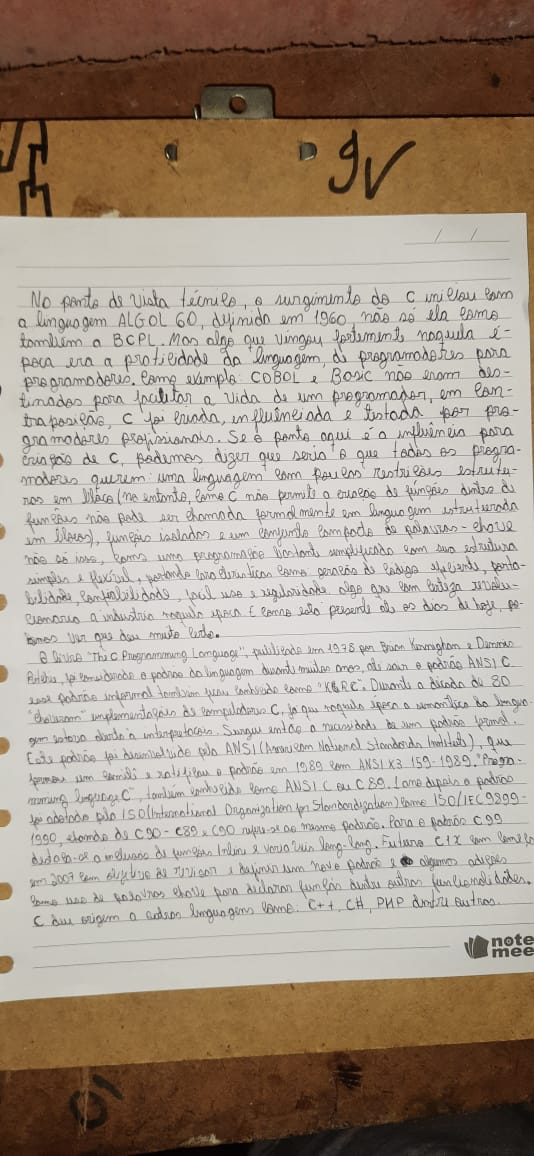 gv
/ /
No ponto de vista técnico, o surgimento do C iniciou com
a linguagem ALGOL 60, definido em 1960, não só ela como
também a BCPL. Mas algo que vingou fortemente naquela é-
poca era a praticidade da linguagem, de programadores para
programadores. Como exemplo: COBOL e Basic não eram des-
tinados para facilitar a vida de um programador, em con-
traposição, C foi criada, influênciada e testada por pro-
gramadores profissionais. Se o ponto aqui é a influência para
criação de C, podemos dizer que seria o que todos os progra-
madores querem: uma linguagem com poucas restrições estrutu-
ras em bloco (no entanto, como C não permite a criação de funções dentro de
funções não pode ser chamada formalmente em linguagem estruturada
em blocos), funções isoladas e um conjunto compacto de palavras-chave
não só isso, como uma programação bastante simplificada com sua estrutura
simples e flexível, portando características como geração de código eficiente, porta-
bilidade, confiabilidade, facil uso e regularidade, algo que com certeza revolu-
cionario a industria naquela época E como está presente até os dias de hoje, po-
demos ver que deu muito certo.
O livro "The C Programming Language", publicado em 1978 por Brian Kernighan e Dennis
Ritchie, foi considerado o padrão da linguagem durante muitos anos, até sair o padrão ANSI C
esse padrão informal também ficou conhecido como "K&RC". Durante a década de 80
implementações de compiladores C, já que naquela época a semantica da lingua-
gem estava aberta a interpretação. Surgiu então a necessidade de um padrão formal.
Este padrão foi desenvolvido pela ANSI (American National Standards Institute), que
formou um comitê e ratificou o padrão em 1989 com ANSI X3 159-1989. "Progra-
mming language C", também conhecido como ANSI C ou C89. 1 ano depois o padrão
foi adotado pela ISO (International Organization for Standardization) como ISO/IEC 9899-
1990, C90 - C89 e C90 ao mesmo padrão. Para o padrão C99
a inclusão de funções Inline e long-long. Futuro C1X com
em 2007 com objetivo de revisar e definir um novo padrão e algumas adições
como uso de palavras chave para declarar função dentre outras funcionalidades.
C deu origem a outras linguagens como: C++, C#, PHP dentre outros.
note
mee